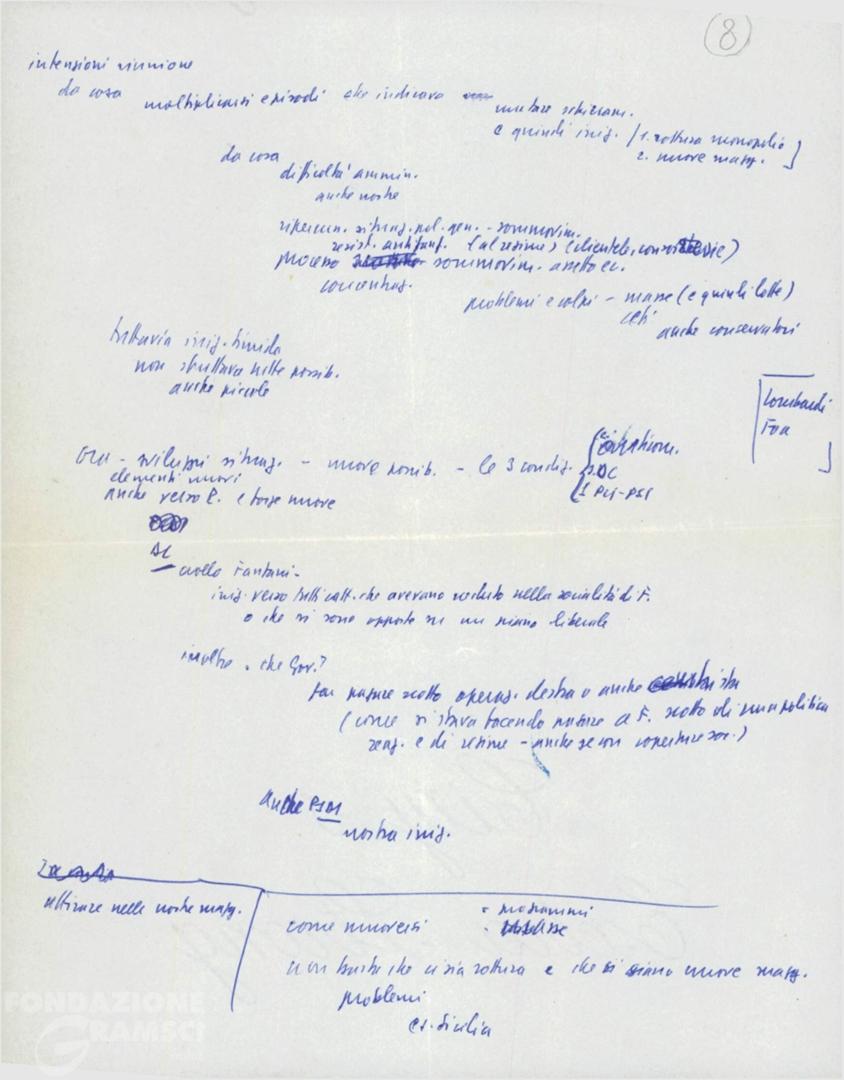 8
intensioni riunione
da cosa moltiplicarsi episodi che indicava
mutare schieram.
e quindi iniz. / 1. rottura monopolio
2. nuove magg. ]
da cosa
difficoltà ammin.
anche nostre
ripercuss. situaz. pol. gen. - sommovim.
resist. antifanf. (al regime) (clientele,
processo sommovim. assetto ec.
concentraz.
problemi e colpi - masse (e quindi lotte)
ceti
anche conservatori
tuttavia iniz. timida
non sfruttava tutte possib.
anche piccole
Lombardi
Foa
ora - sviluppi situaz. - nuove possib. - le 3 condiz.
elementi nuovi
DC
PCI-PSI
anche verso P. e forze nuove
DC
crollo Fanfani -
iniz. verso tutti catt. che avevano creduto nella socialità di F.
o che si sono opposte su un piano liberale
inoltre . che Gov.?
far passare sotto operaz. destra o anche
(come si stava facendo passare a F. sotto di una politica
reaz. e di regime - anche se con coperture soc.)
anche PSDI
nostra iniz.
attirare nelle nostre magg.
come muoversi
- programmi
non basta che ci sia rottura e che si siano nuove magg.
problemi
es. Sicilia
FONDAZIONE
GRAMSCI